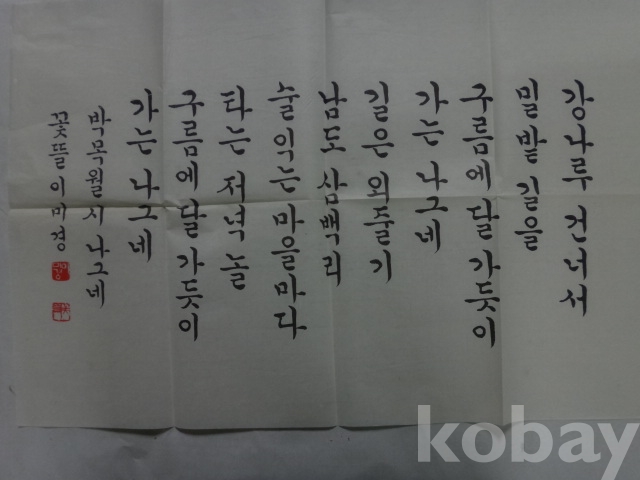 강나루 건너서
밀밭 길을
구름에 달 가듯이
가는 나그네
길은 외줄기
남도 삼백리
술 익는 마을마다
타는 저녁 놀
구름에 달 가듯이
가는 나그네
박목월 시 나그네
꽃뜰 이미경
kobay